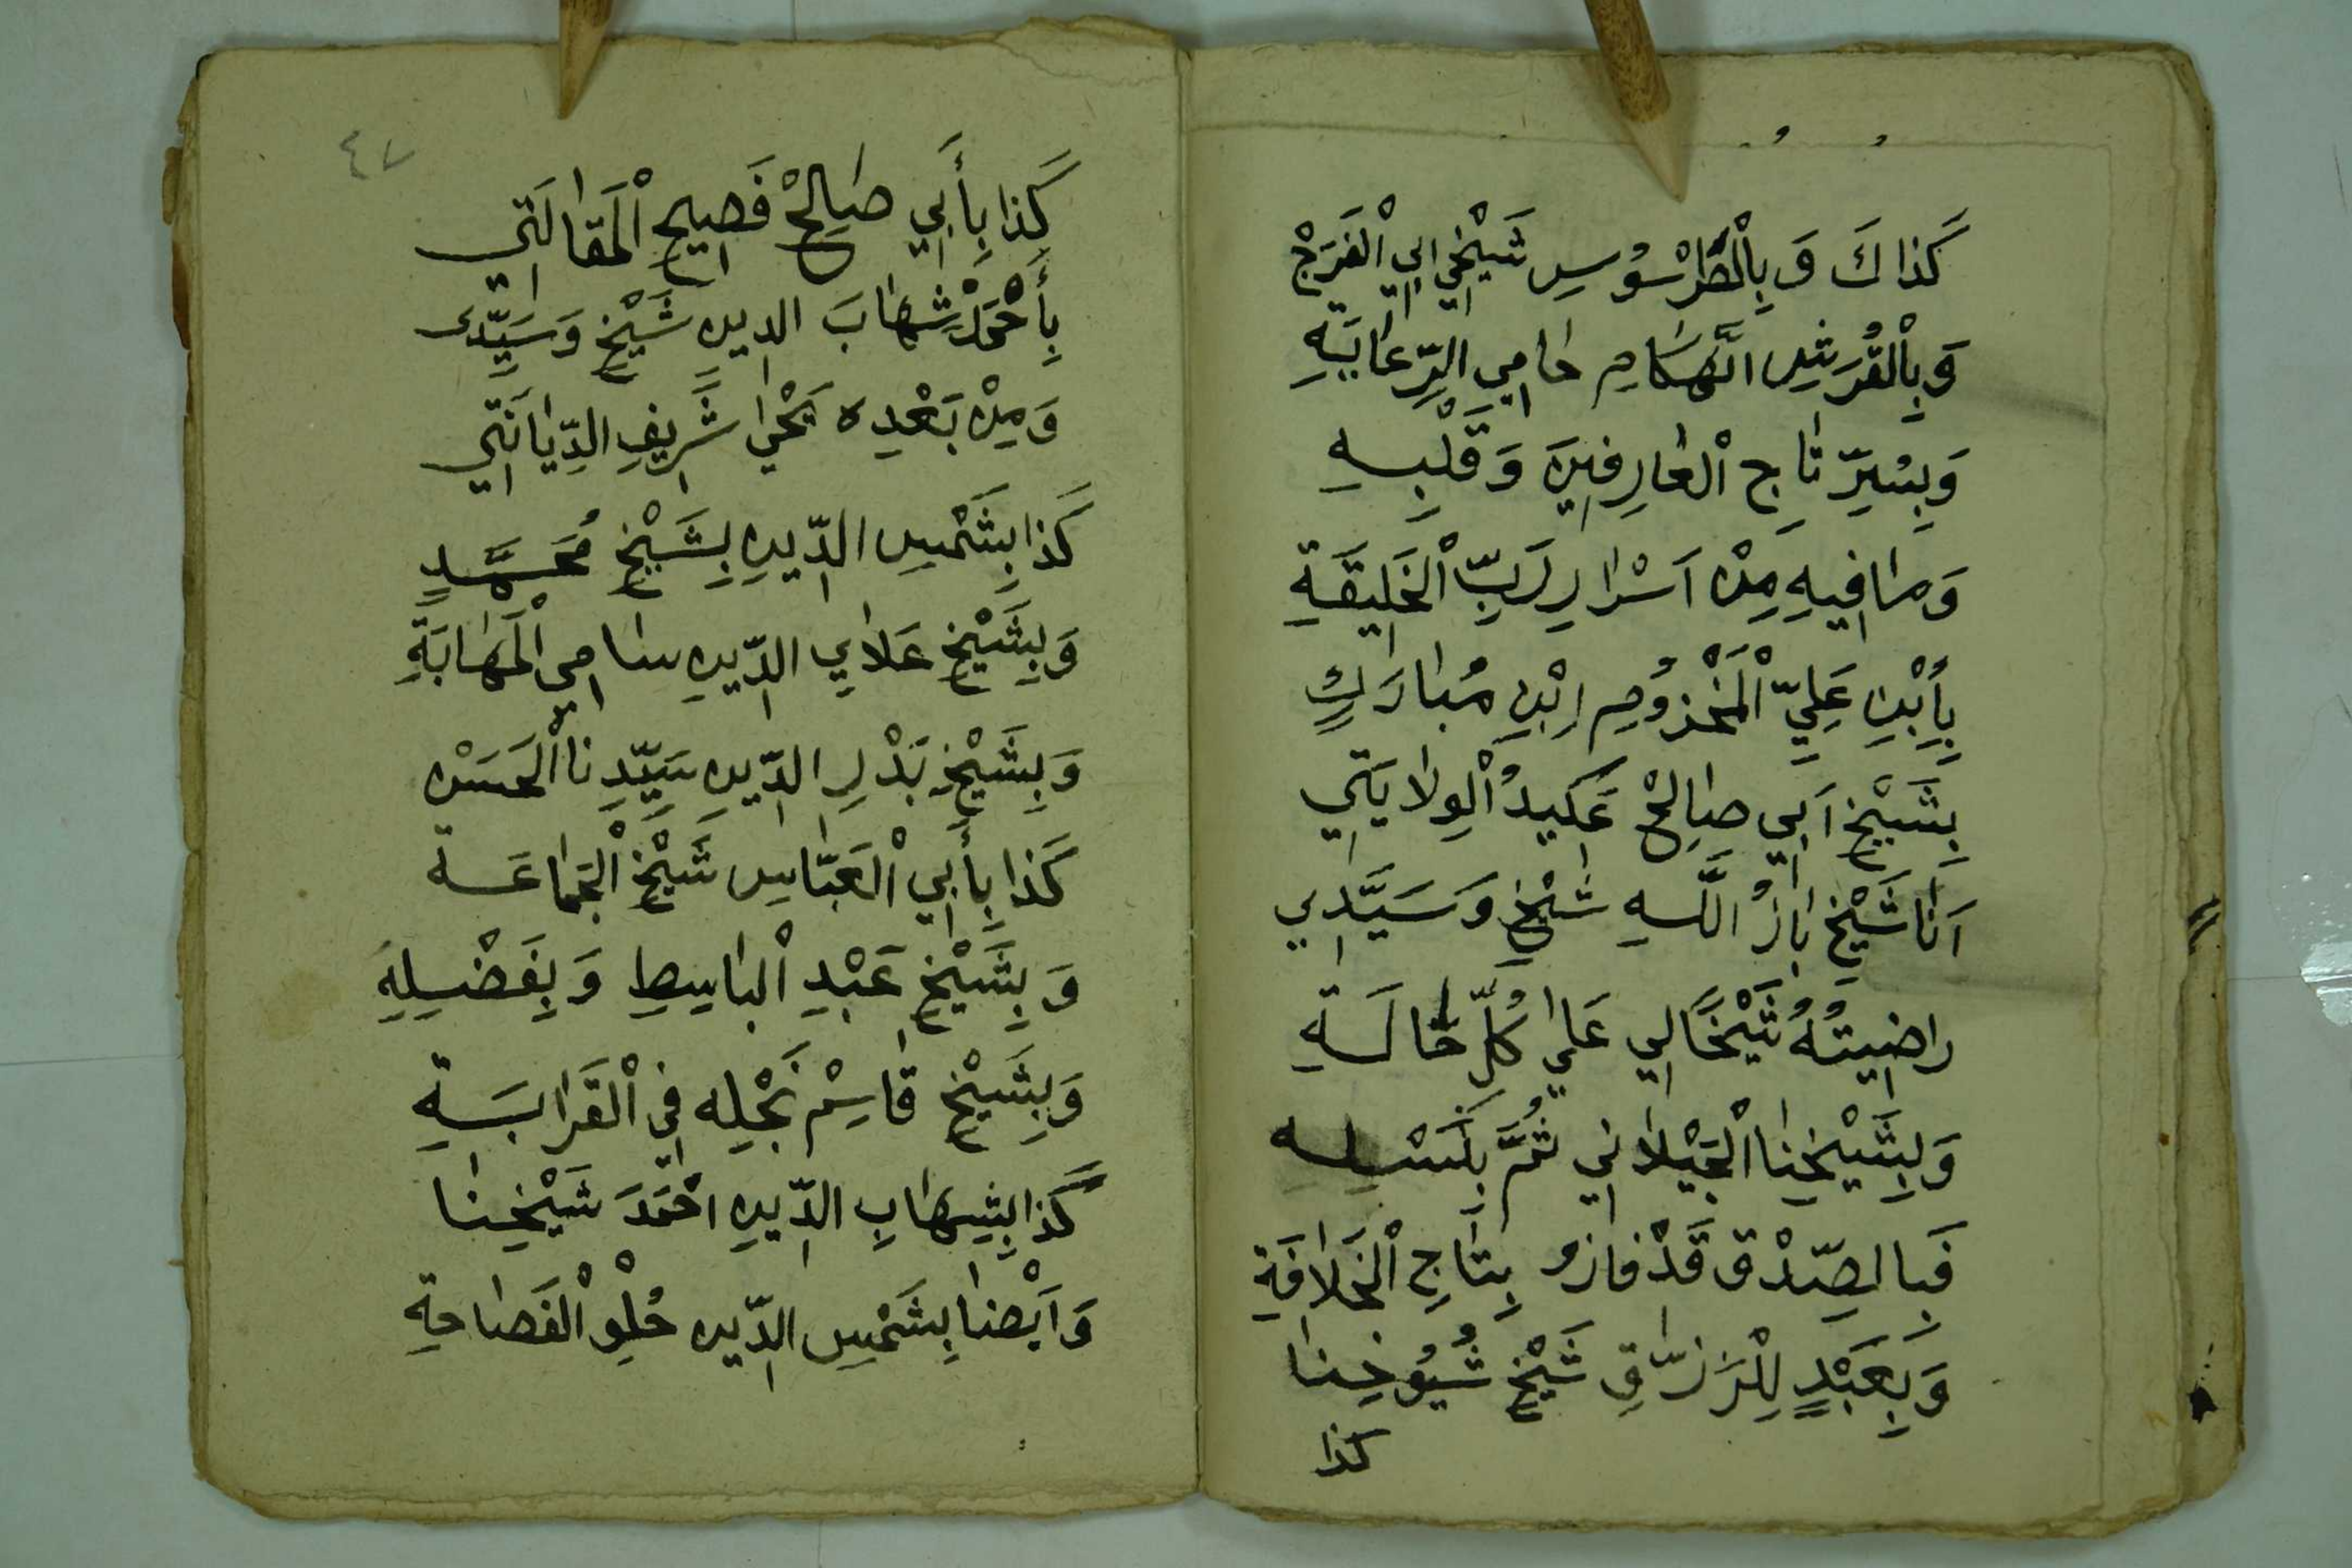 كَذَاكَ وَبِالْطَّرْسُوسِ شَيْخِي ابِي الْفَرَجْ
وَبِالْقُرَشِ الهَّكَامِ حَامِي الرِّعَايَةِ
وَبِسِّرِّ تَاجِ الْعَارِفِينَ وَقَلْبِهِ
وَمَا فِيهِ مِنْ اَسْرَارِ رَبِّ الْخَلِيقَةِ
بِأِبْنِ عَلِيِّ الْمَخْزُومِ اِبْنِ مُبَارَكٍ
بِشَيْخِ اَبِي صَالِحْ عَكِيدُ الْوِلَايَتِي
اَنَا شَيْخِ بَازُ اللَّهِ شَيْخِ وَسَيَّدِي
رَاضِيتُهُ شَيْخًا لِي عَلَي كُلِّ حَالَةِ
وَبِشَيْخِنَا الْجَيْلَانِي ثُمَّ بِنَسْلِه
فَبَا الصِّدْق قَدْ فَازُ بِتَاجِ الْخَلَافَةِ
وَبِعَبْدٍ لِلْرَزَّاقِ شَيْخِ شُيُوخِنَا
كذا
٤٧
كَذَا بِأَبِي صَالِحْ فَصِيحِ الْمَقَالَتِي
بِأَحْمَدْ شِهَابَ الدينِ شَيْخِ وَسَيِّدي
وَمِنْ بَعْدِه يَحْيَ شَرِيفِ الدِّيَانَتِي
كَذَا بِشَمْسِ الدِّينِ بِشَيْخِ مُحَمَّدٍ
وَبِشَيْخِ عَلَايِ الدِّينِ سَامِي الْمَهَابَةِ
وَبِشَيْخِ بَدْرِ الدِّينِ سَيِّدِنَا الْحَسَنْ
كَذَا بِأَبِي الْعَبَّاسِ شَيْخِ الْجَمَاعَة
وَبِشَيْخِ عَبْدِ الْبَاسِطِ وَبِفَضْلِهِ
وَبِشَيْخِ قَاسِمْ نَجْلِه فِي الْقَرَابَةِ
كَذَا بِشِهَابِ الدِّينِ احْمَدَ شَيْخِنَا
وَاَيْضَا بِشَمْسِ الدِّين حُلْوِ الْفَصَاحَةِ